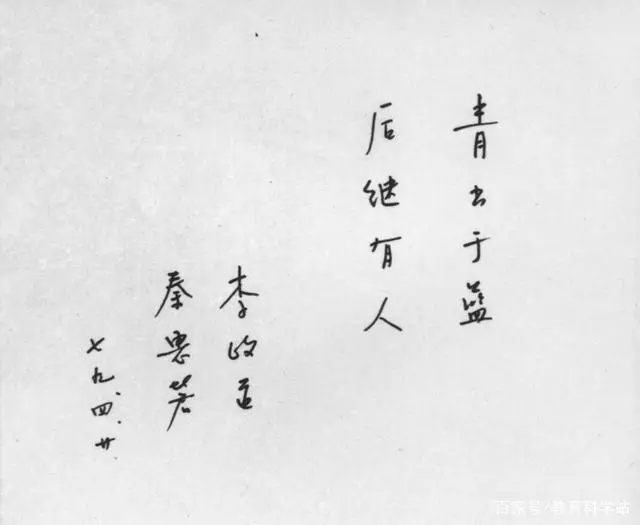 青出于蓝
后继有人
李政道
秦惠䇹
七九.四.廿.
百家号/教育科学站